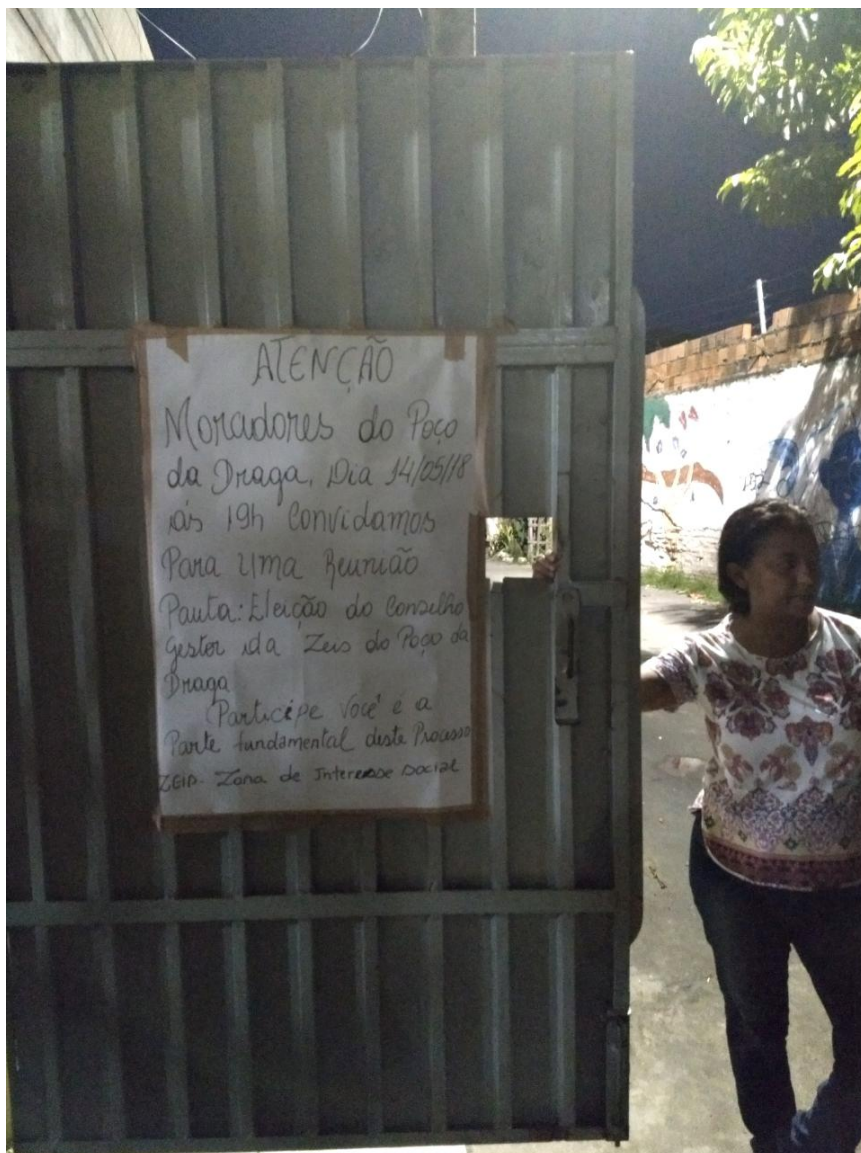 ATENÇÃO
Moradores do Poço
da Draga, Dia 14/05/18
às 19h Convidamos
Para Uma Reunião
Pauta: Eleição do Conselho
Gestor da Zeis do Poço da
Draga
Participe Você é a
Parte fundamental deste Processo
ZEIS- Zona de Interesse Social